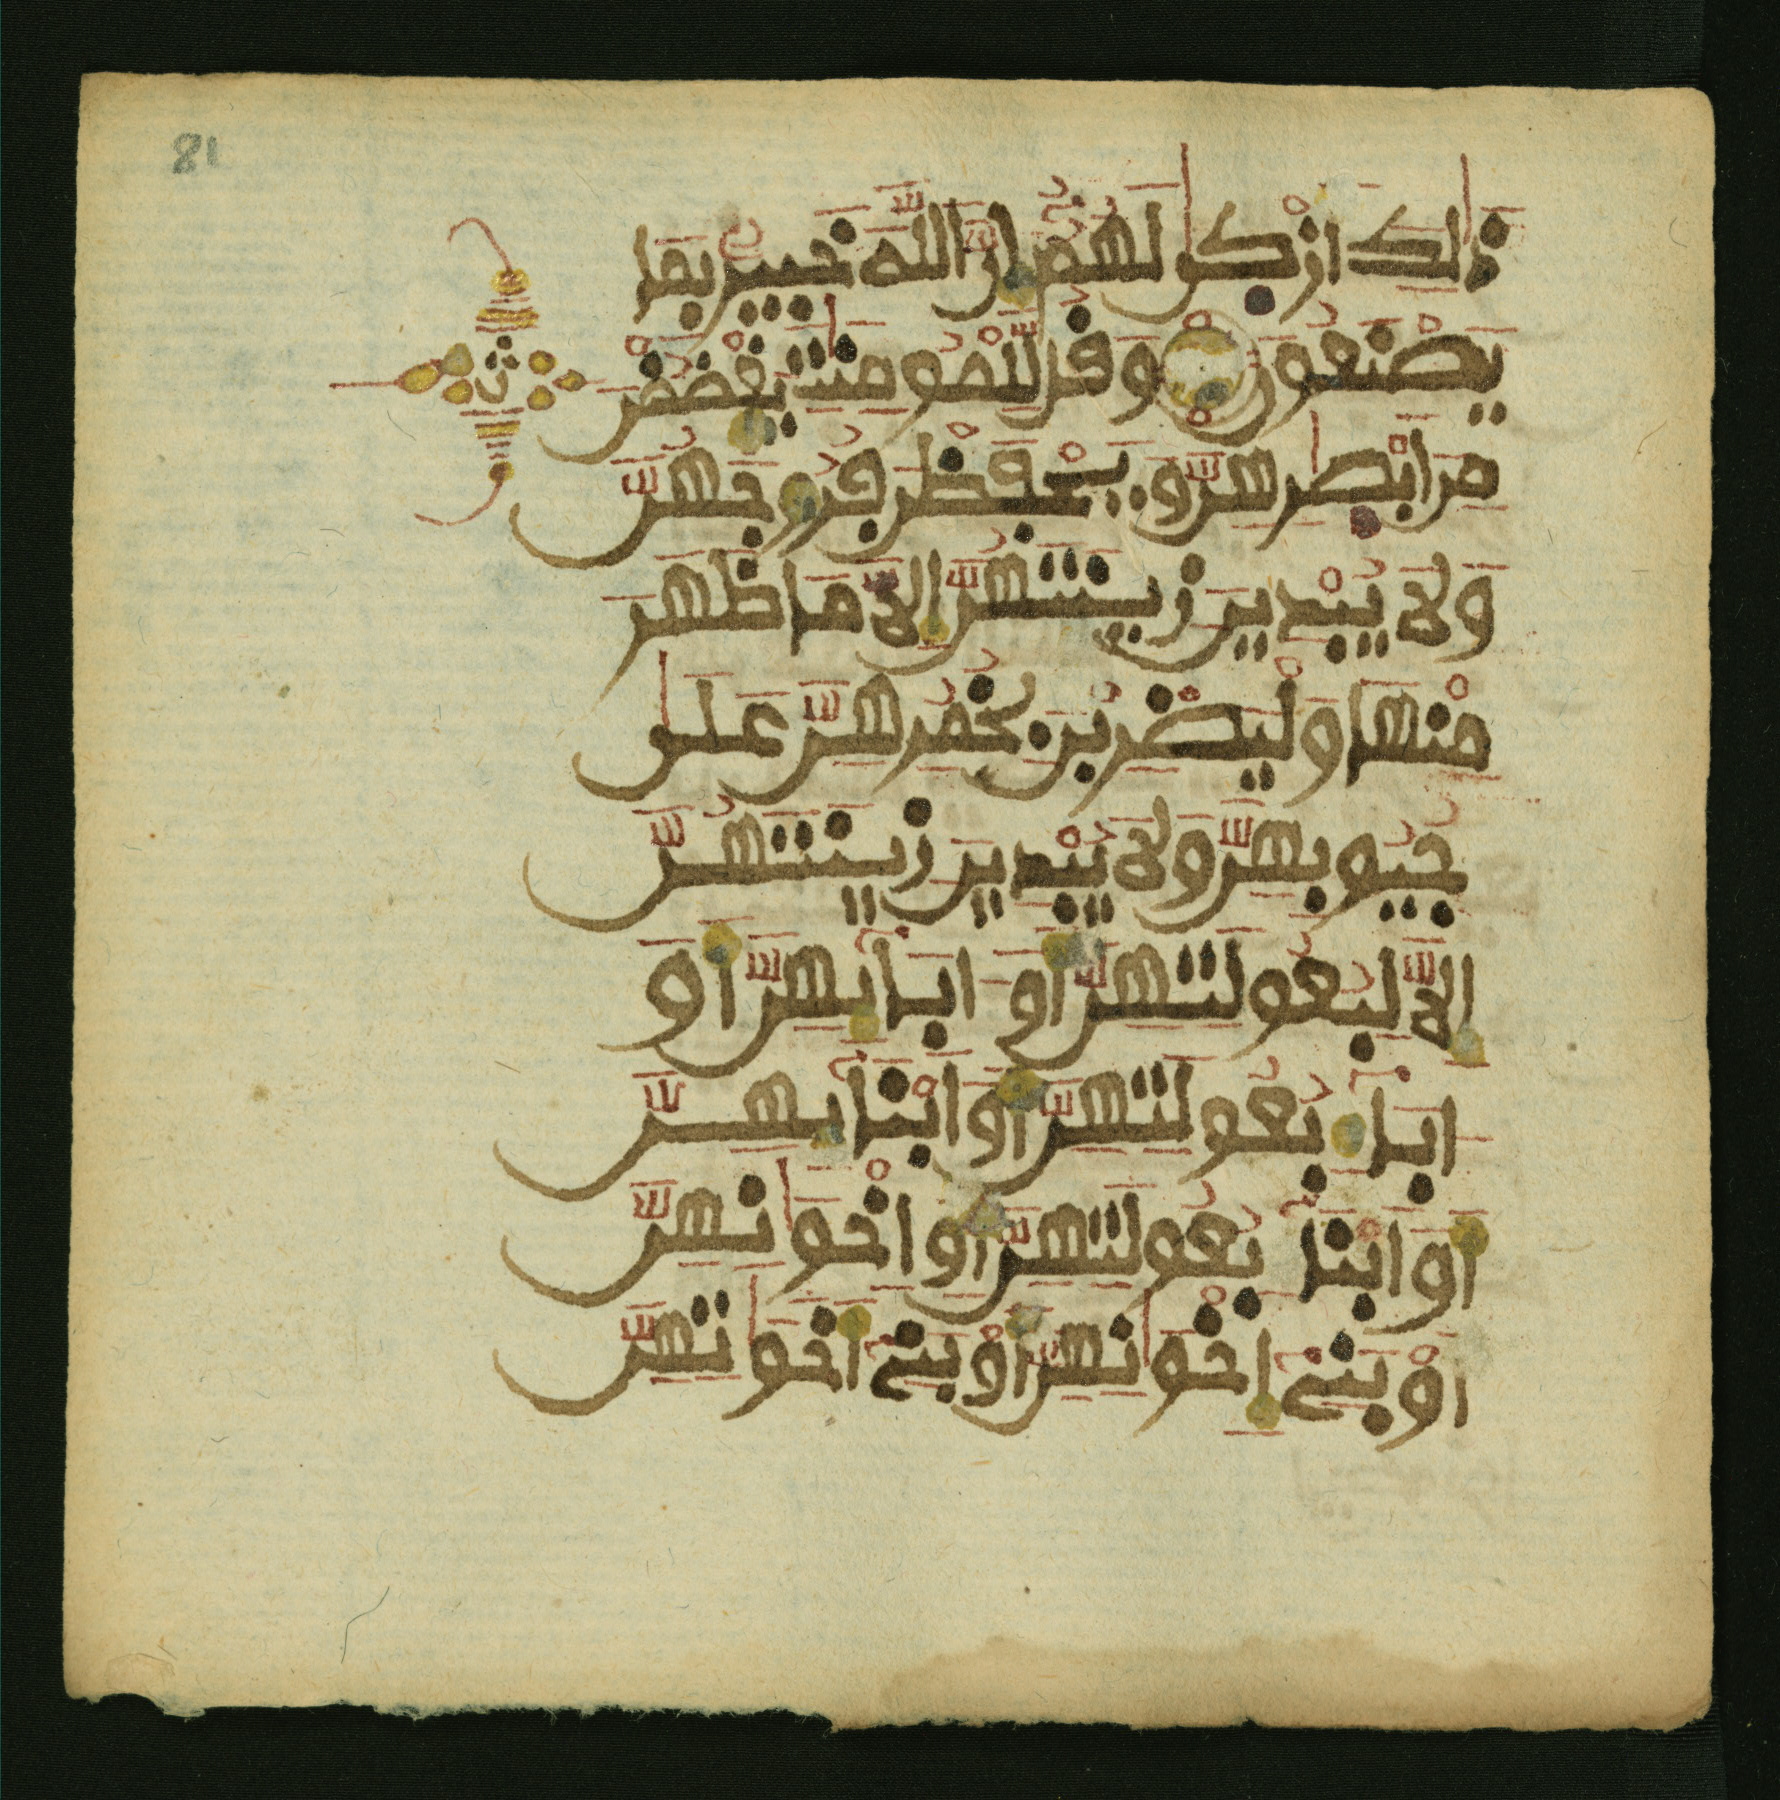 81
ذلك ازكى لهم ان الله خبير بما
يصنعون وقل للمومنت يغضضن
من ابصرهن ويحفظن فروجهن
ولا يبدين زينتهن الا ما ظهر
منها وليضربن بخمرهن على
جيوبهن ولا يبدين زينتهن
الا لبعولتهن او ابايهن او
ابا بعولتهن او ابنايهن
او ابنا بعولتهن او اخوانهن
او بني اخوانهن او بني اخواتهن